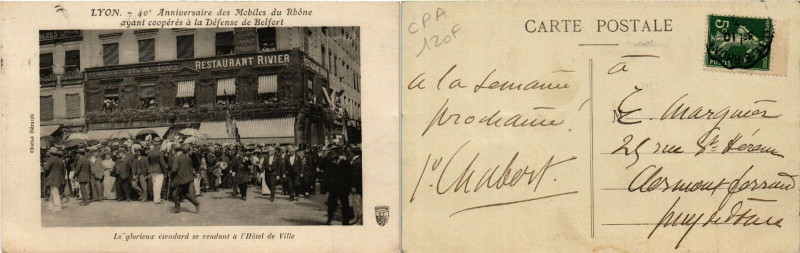 LYON. - 40e Anniversaire des Mobiles du Rhône
ayant coopérés à la Défense de Belfort
RESTAURANT RIVIER
Le glorieux étendard se rendant à l'Hôtel de Ville
CPA
120F
CARTE POSTALE
5c
à la semaine
prochaine!
Chabert.
à
Marquier
25 rue St Hérem
Clermont ferrand
Puy de Dôme